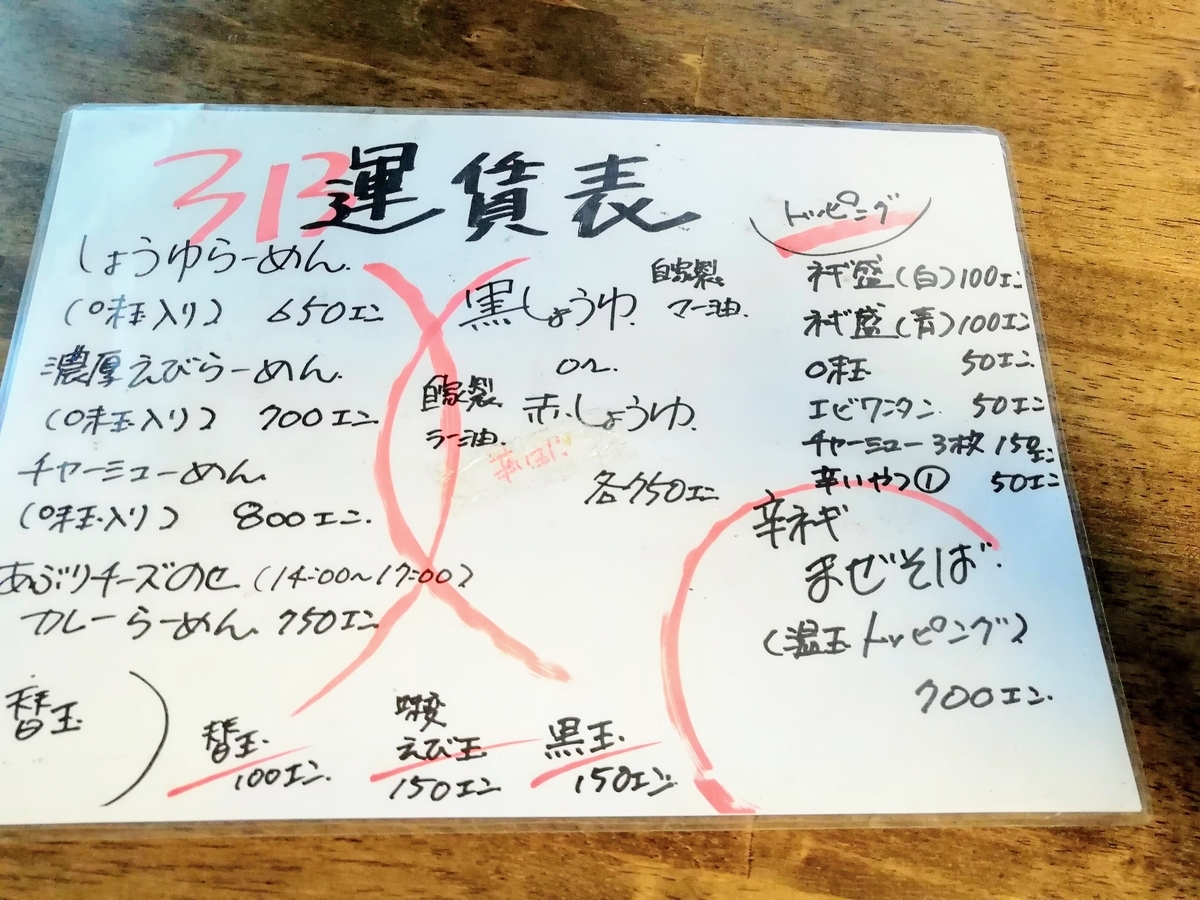 313 運賃表
しょうゆらーめん.
(味玉入り) 650エン
濃厚えびらーめん.
(味玉入り) 700エン
チャーシューめん.
(味玉入り) 800エン.
あぶりチーズのせ (14:00~17:00)
カレーらーめん. 750エン
黒しょうゆ.
自家製
マー油.
or.
自家製
ラー油.
赤しょうゆ.
各750エン
トッピング
ネギ盛(白)100エン
ネギ盛(青)100エン
味玉 50エン
エビワンタン. 50エン
チャーシュー3枚 150エン
辛いやつ① 50エン
辛ネギ
まぜそば.
(温玉トッピング)
700エン.
替玉
替玉.
100エン.
味変
えび玉
150エン
黒玉.
150エン